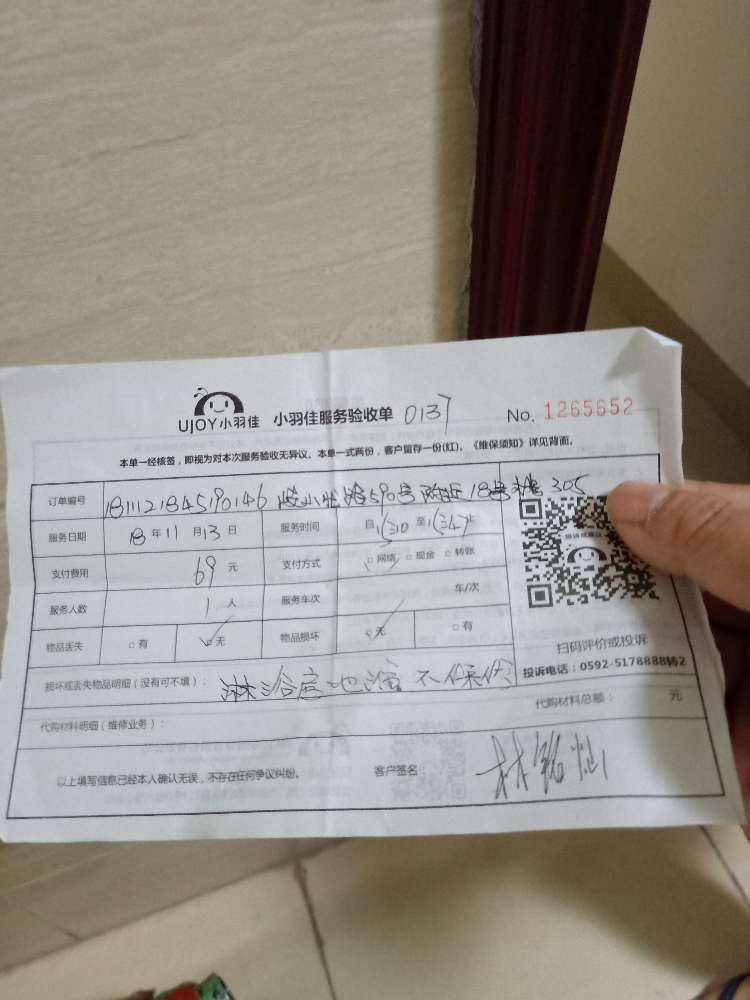 UJOY小羽佳 小羽佳服务验收单 0137 No. 1265652
本单一经核签，即视为对本次服务验收无异议。本单一式两份，客户留存一份(红)。《维保须知》详见背面。
订单编号 1811121845190146 号 18号 305
服务日期 18 年 11 月 13 日 服务时间 自 至 止
支付费用 69 元 支付方式 □ 网络 □ 现金 □ 转账
服务人数 1 人 服务车次 车/次
物品丢失 □ 有 □ 无 物品损坏 □ 无 □ 有
扫码评价或投诉
投诉电话：0592-5178888转2
损坏或丢失物品明细（没有可不填）： 淋浴房地漏不保修
代购材料明细（维修业务）： 代购材料总额： 元
以上填写信息已经本人确认无误，不存在任何争议纠纷。 客户签名